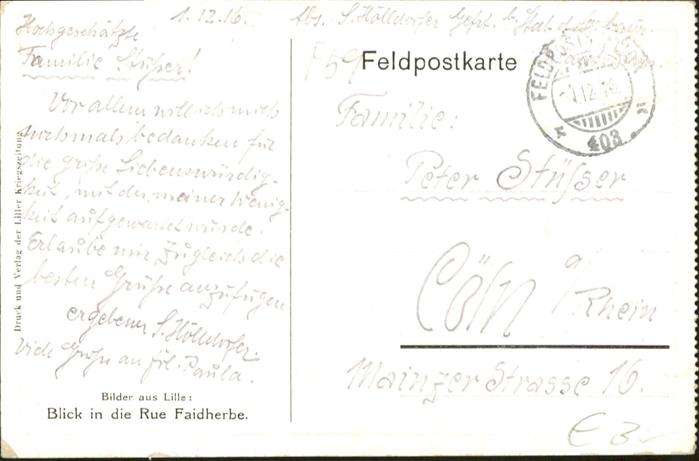 1.12.16. Abs. S. Hölldorfer Gefr. b.
Hochgeschätzte
Familie Stüsser!
Vor allem will ich mich
nochmals bedanken für
die große Liebenswürdig-
keit, mit der meiner Wenig-
keit aufgewartet wurde.
Erlaube mir zugleich die
besten Grüße anzufügen
ergebener S. Hölldorfer.
Viele Grüße an Frl. Paula.
Bilder aus Lille:
Blick in die Rue Faidherbe.
Druck und Verlag der Liller Kriegszeitung
Feldpostkarte
403
Familie:
Peter Stüsser
Cöln a/Rhein
Mainzer Strasse 16.